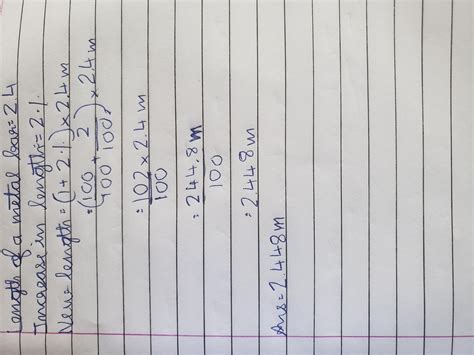 Length of a metal bar = 2.4
Increase in length = 2%
New length = (1 + 2%) × 2.4 m
= (100/100 + 2/100) × 2.4 m
= 102 × 2.4 m / 100
= 244.8 m / 100
= 2.448 m
Ans = 2.448m